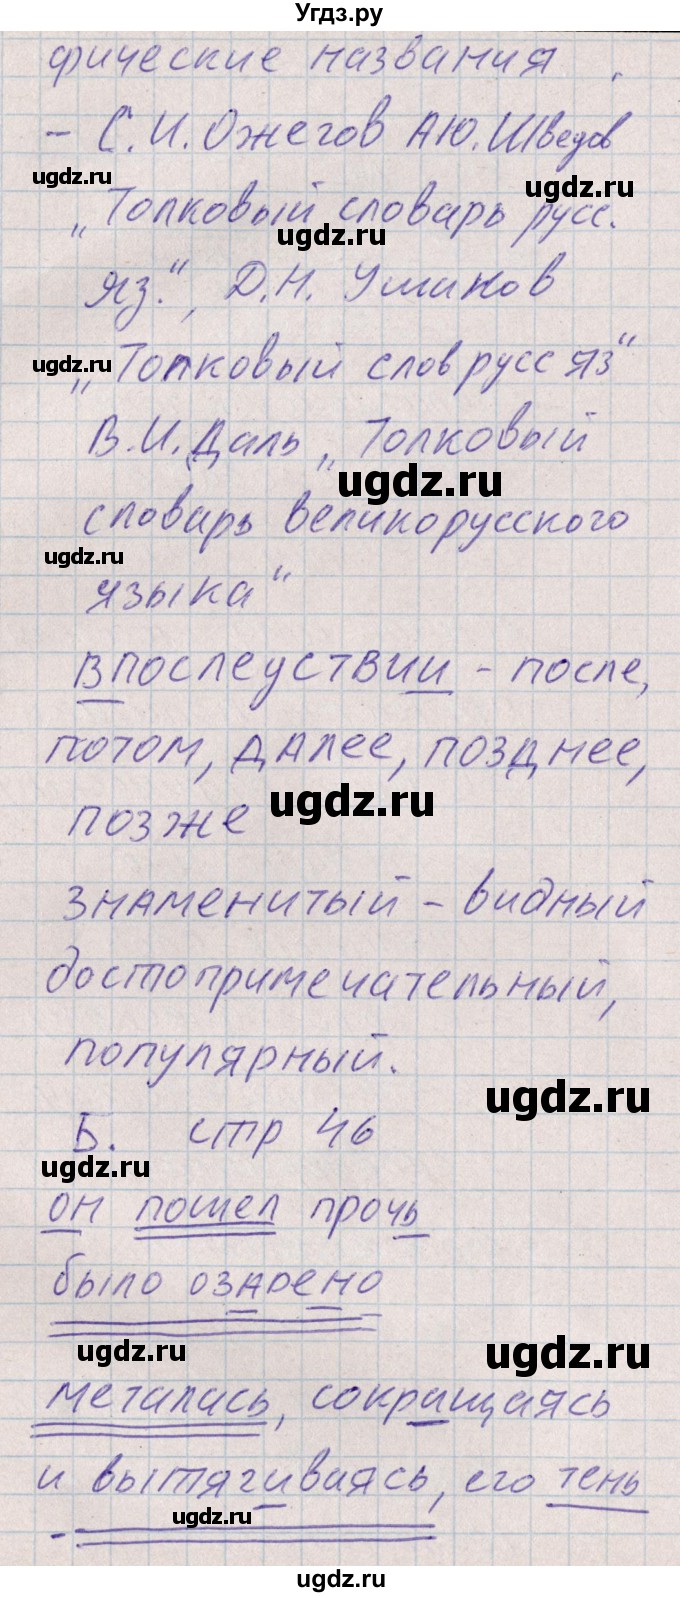 Угдз.ру
фические названия
- С.И. Ожегов А.Ю. Шведов
ugdz.ru
ugdz.ru
„Толковый словарь русс.
ugdz.ru
яз.“, Д.Н. Ушиков
ugdz.ru
„Топковый слов русс яз“
В.И. Даль „Толковый
ugdz.ru
словарь великорусского
ugdz.ru
языка“
Впослеуствии - после,
потом, далее, позднее,
ugdz.ru
позже
знаменитый - видный
достопримечательный,
популярный.
ugdz.ru
Б. стр 46
ugdz.ru
он пошел прочь
было озарено
ugdz.ru
ugdz.ru
металась, сокращаясь
и вытягиваясь, его тень
ugdz.ru
ugdz.ru